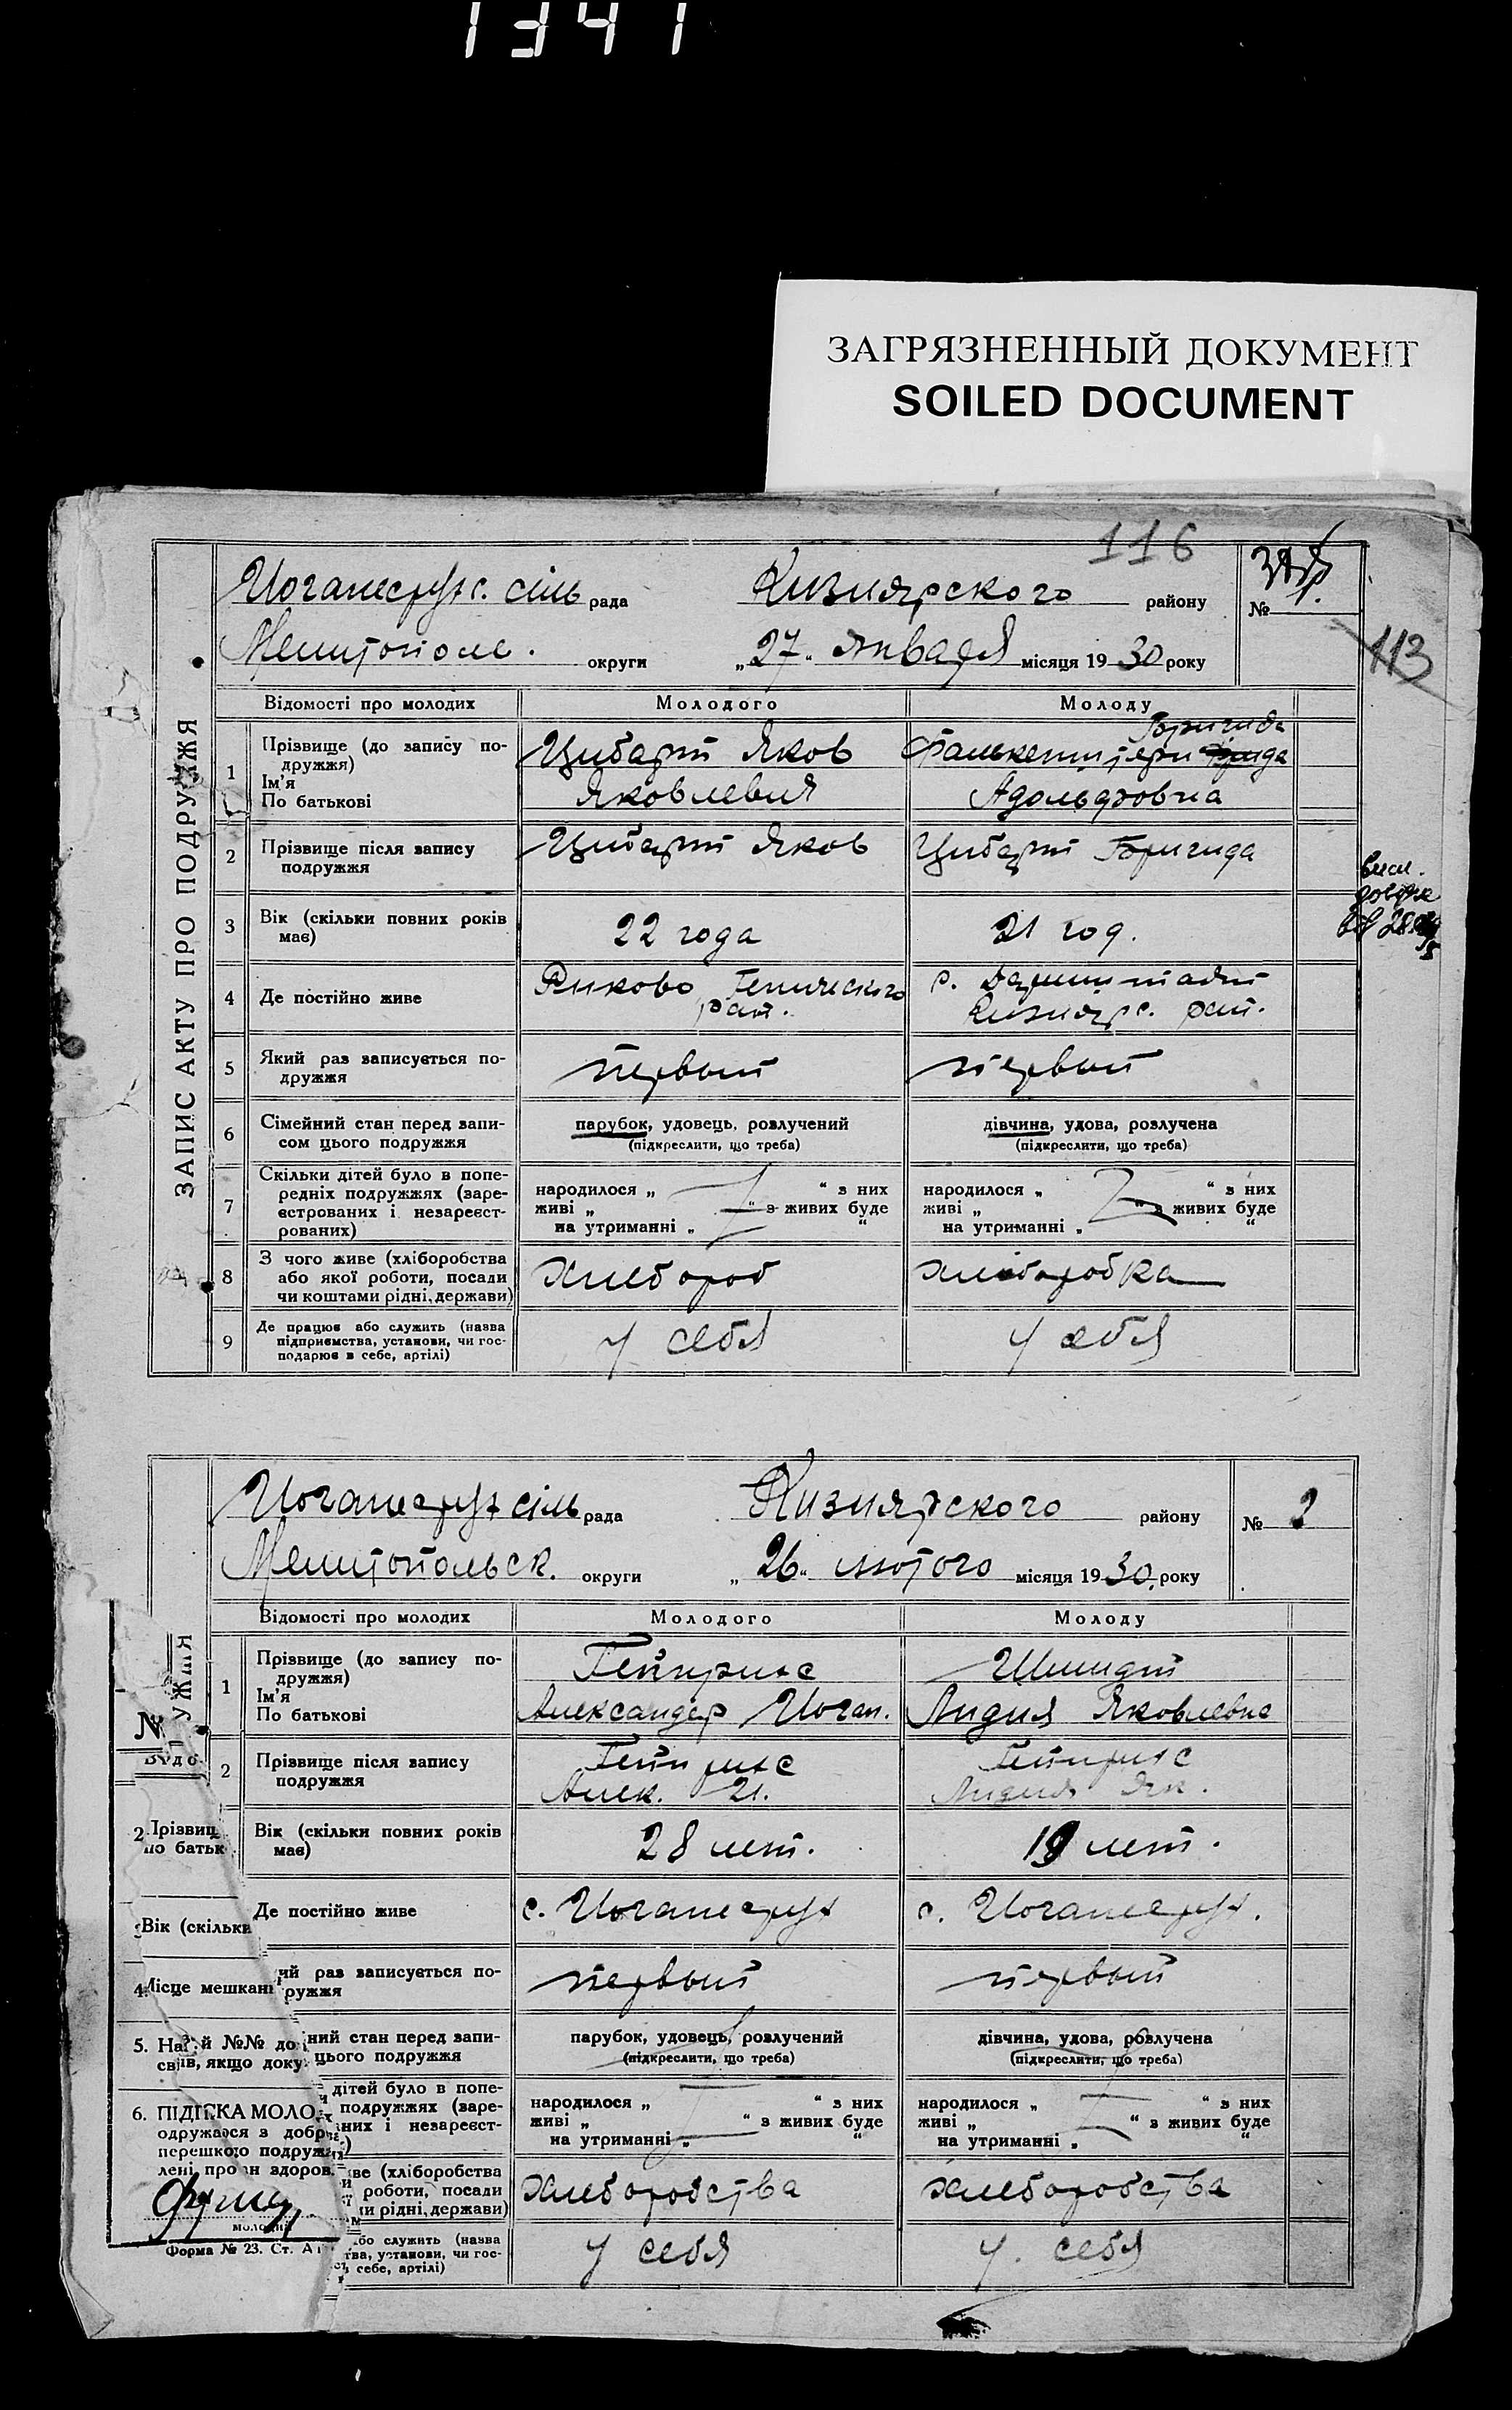 1341
ЗАГРЯЗНЕННЫЙ ДОКУМЕНТ
SOILED DOCUMENT
116
113
ЗАПИС АКТУ ПРО ПОДРУЖЖЯ
Иоганесрухс. сіль рада Кизиярского району №
Мелитополе. округи „27“ января місяця 1930 року
Відомості про молодих Молодого Молоду
1 Прізвище (до запису подружжя)
Ім'я
По батькові
Цибарт Яков
Яковлевия
Адольфовна
2 Прізвище після запису
подружжя
Цибарт Яков Цибарт
3 Вік (скільки повних років
має)
22 года 21 год.
4 Де постійно живе
Риково Генического
рай.
с. Дармштадт
Кизиярс. рай.
5 Який раз записується по-
дружжя
первый первый
6 Сімейний стан перед запи-
сом цього подружжя
парубок, удовець, розлучений
(підкреслити, що треба)
дівчина, удова, розлучена
(підкреслити, що треба)
7 Скільки дітей було в попе-
редніх подружжях (заре-
єстрованих і незареєст-
рованих)
народилося „ “ з них
живі „ “ з живих буде
на утриманні „ “
народилося „ “ з них
живі „ “ з живих буде
на утриманні „ “
8 З чого живе (хліборобства
або якої роботи, посади
чи коштами рідні, держави)
хлебороб хлеборобка
9 Де працює або служить (назва
підприємства, установи, чи гос-
подарює в себе, артілі)
у себя у себя
Иоганесрух сіль рада Кизиярского району № 2
Мелитопольск. округи „26“ лютого місяця 1930. року
Відомості про молодих Молодого Молоду
УЖЖЯ
1 Прізвище (до запису по-
дружжя)
Ім'я
По батькові
Гейнрихс
Александер Иоган.
Шмидт
Лидия Яковлевна
2 Прізвище після запису
подружжя
Гейнрихс
Алек. И.
Гейнрихс
Лидия Як.
Вік (скільки повних років
має)
28 лет. 19 лет.
Де постійно живе
с. Иоганесрух с. Иоганесрух.
ий раз записується по-
ружжя
первый первый
ний стан перед запи-
цього подружжя
парубок, удовець, розлучений
(підкреслити, що треба)
дівчина, удова, розлучена
(підкреслити, що треба)
дітей було в попе-
подружжях (заре-
них і незареєст-
народилося „ “ з них
живі „ “ з живих буде
на утриманні „ “
народилося „ “ з них
живі „ “ з живих буде
на утриманні „ “
ве (хліборобства
роботи, посади
и рідні, держави)
хлеборобства хлеборобства
бо служить (назва
тва, установи, чи гос-
себе, артілі)
у себя у. себя
№
2 Прізвищ
по батьк
Вік (скільки
4. Місце мешкан
5. На й №№ до
св ів, якщо доку
6. ПІДПСКА МОЛО
одружаєся з добр
перешкою подруж
лені про н здоров.
молодий
Форма № 23. Ст. А